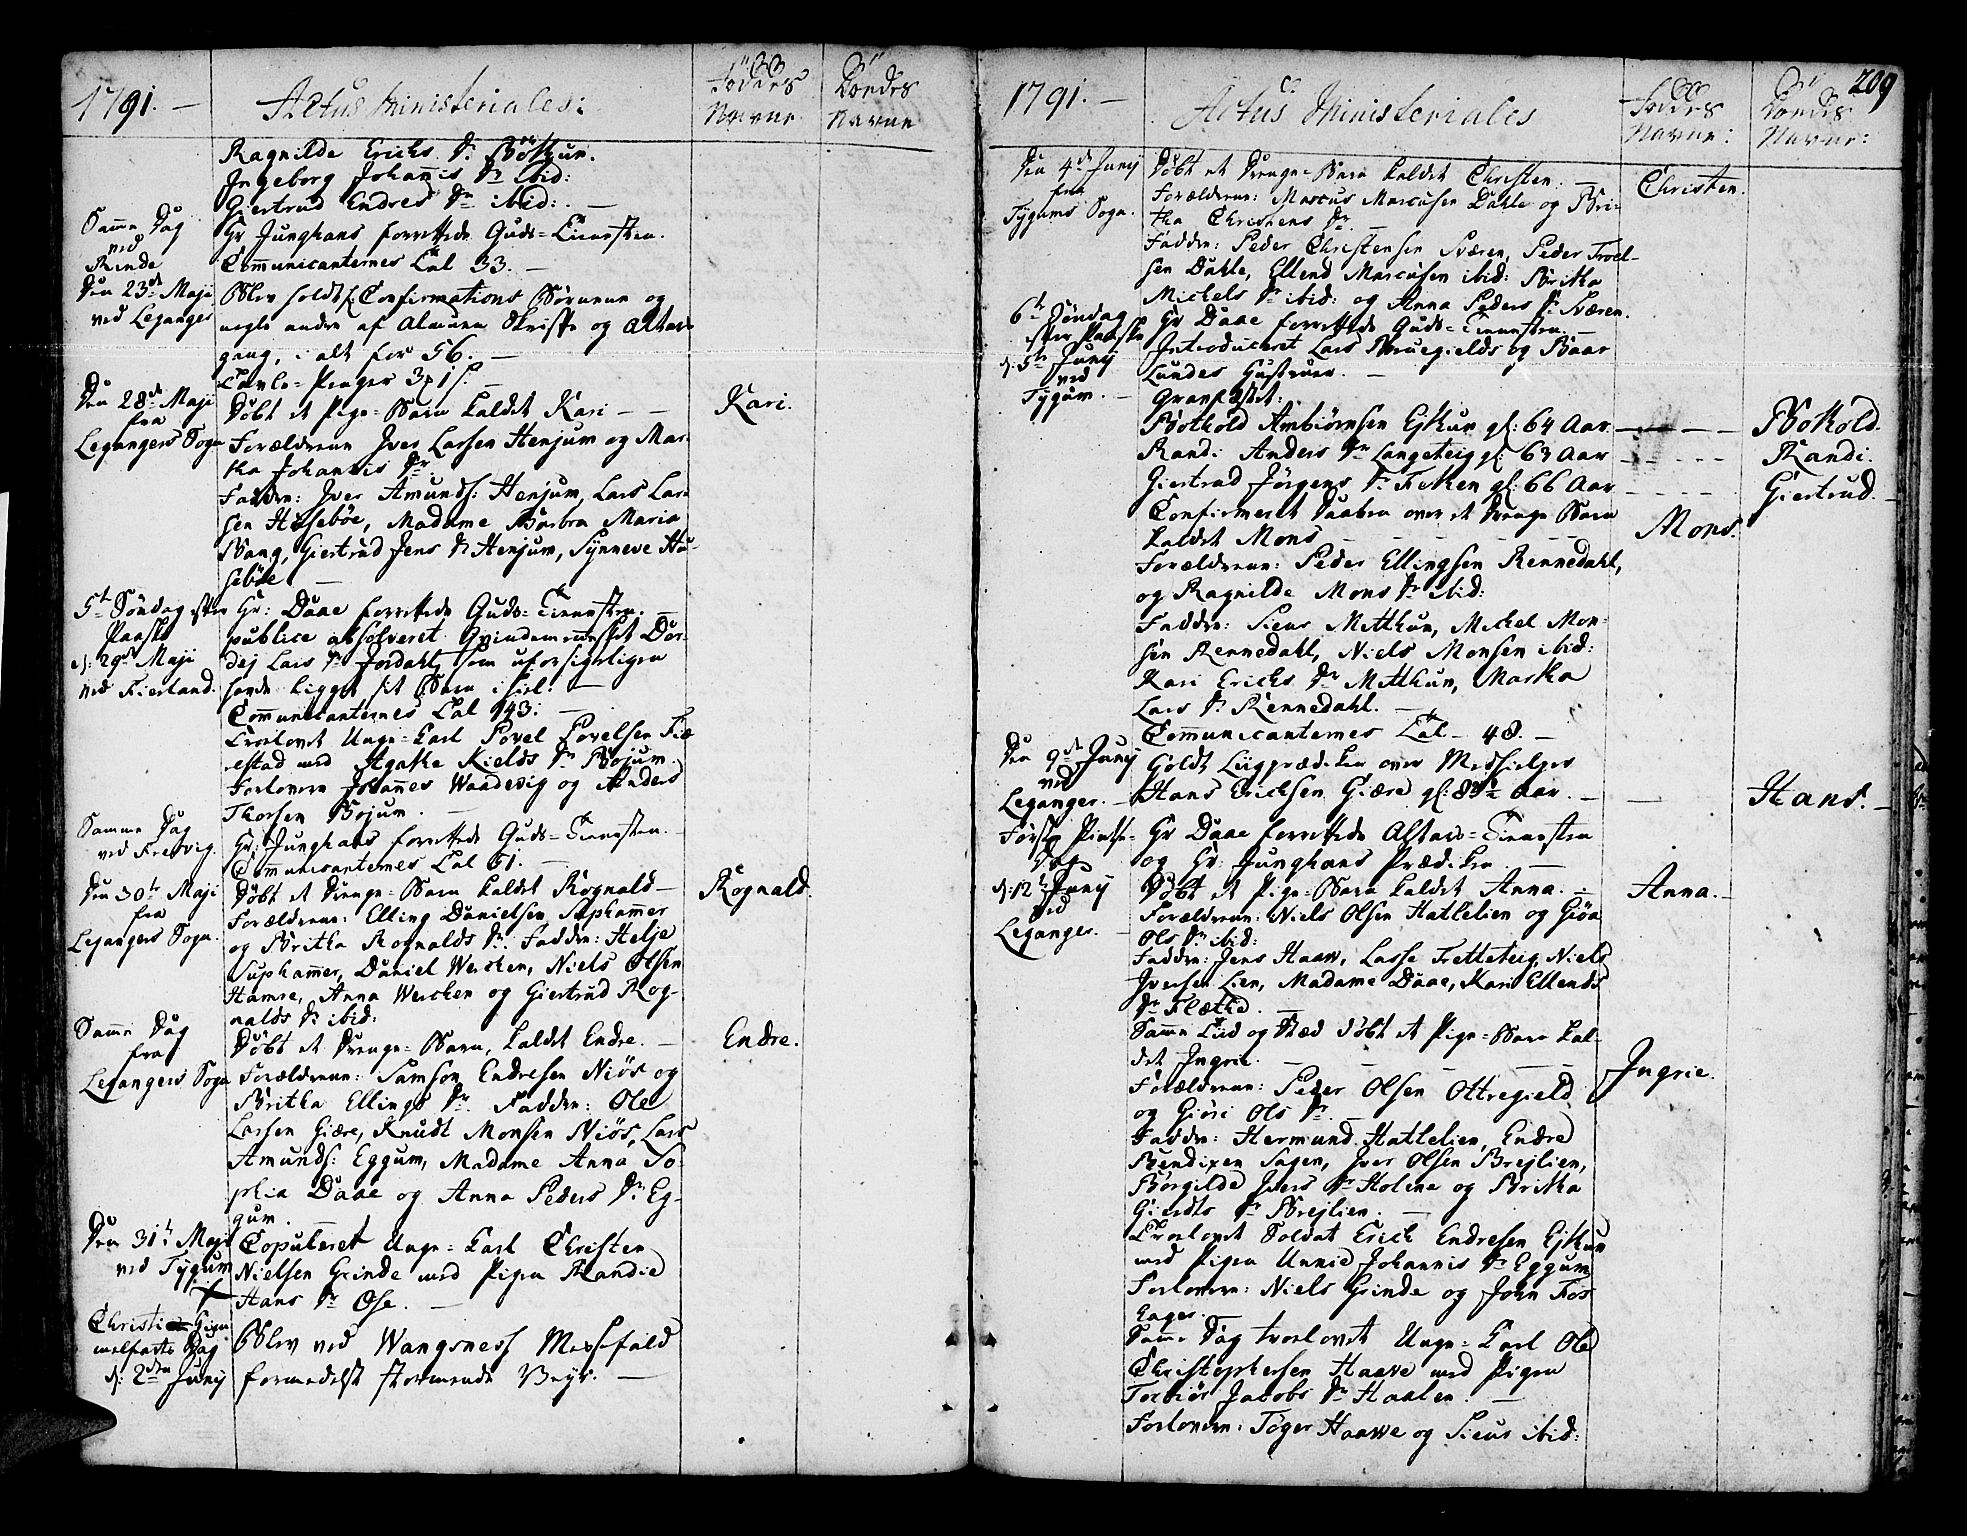 1791. —
Actus Ministeriales:
Føddes Navne
Døødes Navne
Ragnilde Erichs Dr. Bøthun.
Ingeborg Johannis Dr ibid:
Giertrud Endres Dr ibid: —
Samme Dag
ved
Rinde
Hr Junghans forrettede Guds-Tienesten.
Communicanternes Tal 33. —
Den 23de Maji
ved Leganger
Blev holdt Confirmations Børnene og
nogle andre af Almuen Skrifte og Altar-
gang, i alt for 56. —
Tavle-Penger
Den 28de Maji
fra
Legangers Sogn
Døbt et Pige-Barn kaldet Kari — —
Kari.
Forældrene Iver Larsen Henjum og Mar-
tha Johannis Dr.
Faddere: Iver Amunds: Henjum, Lars Lar-
sen Husebøe, Madame Barbra Maria
Bang, Giertrud Jens Dr Henjum, Synneve Hu-
sebøe —
5te Søndag efter
Paaske
d: 29de Maji
ved Fierland.
Hr: Daae forrettede Guds-Tienesten. —
publice absolveret Qvindemennisket Dor-
dej Lars Dr Jordahl, som uforsigtligen
havde ligget sit Barn ihiel. —
Communicanternes Tal 143. —
Trolovet Unge-Karl Povel Povelsen Fiæ-
restad med Agathe Kields Dr Bøjum.
Forlovere Johannes Waadevig og Anders
Thorsen Bøjum. —
Samme Dag
ved Fresvig.
Hr: Junghans forrettede Guds-Tienesten. —
Communicanternes Tal 61. —
Den 30te Maji
fra
Legangers Sogn.
Døbt et Drenge-Barn kaldet Rognald —
Rognald.
Forældrene: Elling Danielsen Suphammer
og Britha Rognalds Dr. Faddere: Helje
Suphammer, Daniel Werchen, Niels Olsen
Hamre, Anna Werchen og Giertrud Rog-
nalds Dr ibid:
Samme Dag
fra
Legangers Sogn
Døbt et Drenge-Barn, kaldet Endre. —
Endre.
Forældrene: Samson Endresen Niøs og
Britha Ellings Dr. Faddere: Ole
Larsen Giære, Knudt Monsen Niøs, Lars
Amunds: Eggum, Madame Anna So-
phia Daae og Anna Peders Dr. Eg-
gum.
Den 31te Maji
ved Tygum
Copuleret Unge-Karl Christen
Nielsen Grinde med Pigen Randie
Hans Dr Ose. —
Christi Him-
melfarts Dag
d: 2den Junij
Blev ved Wangsness Messefald
formedelst stormende Veyr. —
1791. —
Actus Ministeriales
Føddes Navne:
Døødes Navne:
209
Den 4de Junij
fra
Tygums Sogn.
Døbt et Drenge-Barn kaldet Christen. —
Christen.
Forældrene: Marcus Marcusen Dahle og Bri-
tha Christens Dr. —
Faddere: Peder Christensen Sværen, Peder Troel-
sen Dahle, Ellend Marcusen ibid: Britha
Michels Dr ibid: og Anna Peders Dr. Sværen.
6te Søndag
efter Paaske
d: 5te Junij
ved
Tygum. —
Hr Daae forrettede Guds-Tienesten. —
Introduceret Lars Bruegields og Baar
Lundes Hustruer. —
Gravfæstet:
Bothold Ambiørnsen Ejthun gl: 64 Aar — — — —
Bothold.
Randi Anders Dr Langeteig gl: 63 Aar
Randi.
Giertrud Jørgens Dr. Feten gl: 66 Aar
Giertrud. —
Confirmeret Daaben over et Drenge Barn
kaldet Mons — — — —
Mons.
Forældrene: Peder Ellingsen Rennedahl,
og Ragnilde Mons Dr ibid:
Faddere: Sieur Mitthun, Michel Mon-
sen Rennedahl, Niels Monsen ibid:
Kari Erichs Dr Mitthun, Martha
Lars Dr Rennedahl. —
Communicanternes Tal — 48. —
Den 9de Junij
ved
Leganger. —
Holdt Liigprædiken over Medhielper
Hans Erichsen Giære gl: Aar. —
Hans. —
Første Pintse-
Dag
d: 12te Junij
ved
Leganger. —
Hr Daae forrettede Altar-Tienesten
og Hr Junghans Prædiken. —
Døbt et Pige-Barn kaldet Anna. —
Anna. —
Forældrene: Niels Olsen Hatlelien og Giøa
Ols Dr ibid:
Faddere: Jens Haave, Lasse Fretteteig, Niels
Iversen Lien, Madame Daae, Kari Ellends
Dr Flæthe. —
Samme Tiid og Stæd døbt et Pige-Barn kal-
det Ingrie. — — — —
Ingrie.
Forældrene: Peder Olsen Ottregield
og Giøri Ols Dr. —
Faddere: Hermund Hatlelien, Endre
Bendixen Sagen, Iver Olsen Brejlien,
Borgilde Ivers Dr Holene og Britha
Gierdts Dr Brejlien. —
Trolovet Soldat Erich Endresen Ejthun
med Pigen Unnie Johannis Dr Eggum
Forlovere: Niels Grinde og John Fos-
hager. —
Samme Dag trolovet Unge-Karl Ole
Christophersen Haave med Pigen
Torbiør Jacobs Dr Haalen. —
Forlovere: Tøger Haave og Sieur ibid: